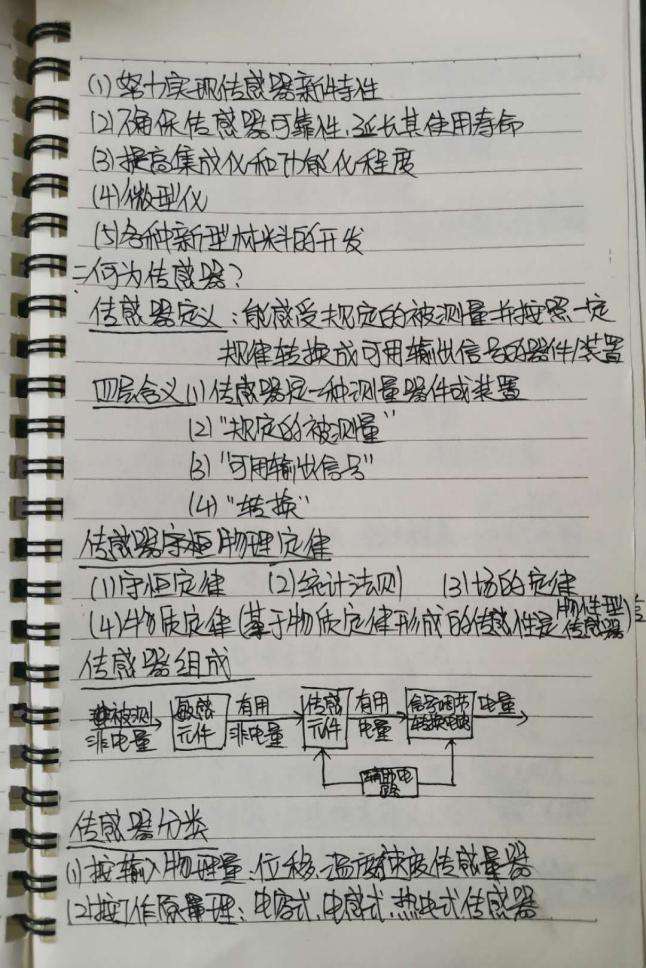 (1)努力实现传感器新特性
(2)确保传感器可靠性,延长其使用寿命
(3)提高集成化和功能化程度
(4)微型化
(5)各种新型材料的开发
二何为传感器?
传感器定义:能感受规定的被测量并按照一定
规律转换成可用输出信号的器件/装置
四层含义(1)传感器是一种测量器件或装置
(2)“规定的被测量”
(3)“可用输出信号”
(4)“转换”
传感器守恒物理定律
(1)守恒定律 (2)统计法则 (3)场的定律
(4)物质定律(基于物质定律形成的传感性是物性型传感器)
传感器组成
被测非电量 敏感元件 有用非电量 传感元件 有用电量 信号调节转换电路 电量
辅助电路
传感器分类
(1)按输入物理量:位移、温度、传感器
(2)按工作原理:电容式、电感式、热电式传感器